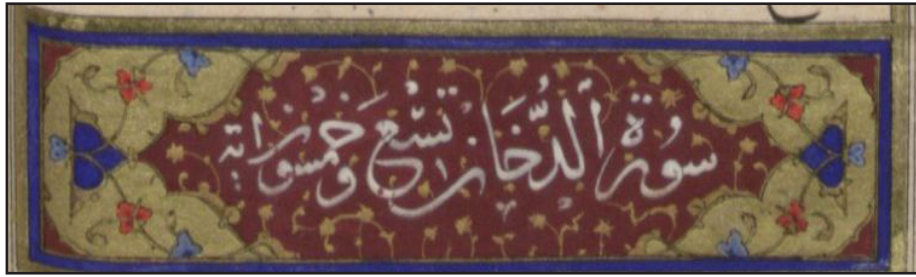 سُورَة ٱلدُّخَان تِسْع وَخَمْسُون اٰیَة